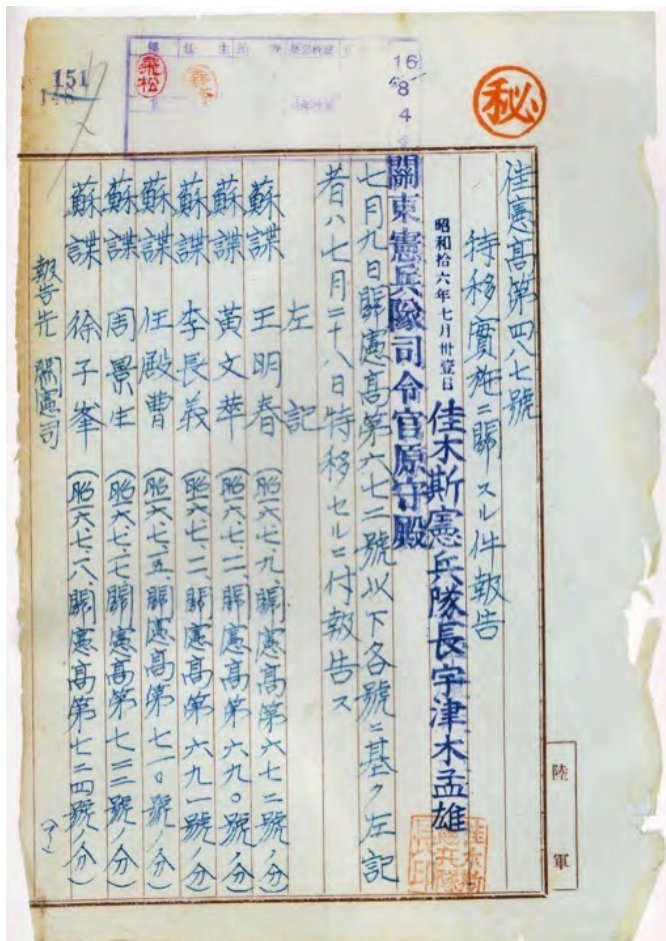 秘
16
8
4
151
飛松
佳憲高第四八七號
特移實施ニ關スル件報告
昭和拾六年七月卅壹日
佳木斯憲兵隊長宇津木孟雄
佳木斯憲兵隊長印
關東憲兵隊司令官原守殿
七月九日關憲高第六七二號以下各號ニ基ク左記
者ハ七月二十八日特移セルニ付報告ス
左記
蘇諜 王明春 (昭一六、七、九、關憲高第六七二號ノ分)
蘇諜 黃文華 (昭一六、七、一一、關憲高第六九〇號ノ分)
蘇諜 李長義 (昭一六、七、一一、關憲高第六九一號ノ分)
蘇諜 任殿曹 (昭一六、七、一五、關憲高第七一〇號ノ分)
蘇諜 周景生 (昭一六、七、一七、關憲高第七二二號ノ分)
蘇諜 徐子峯 (昭一六、七、一八、關憲高第七二四號ノ分)
報告先 關憲司
(了)
陸軍